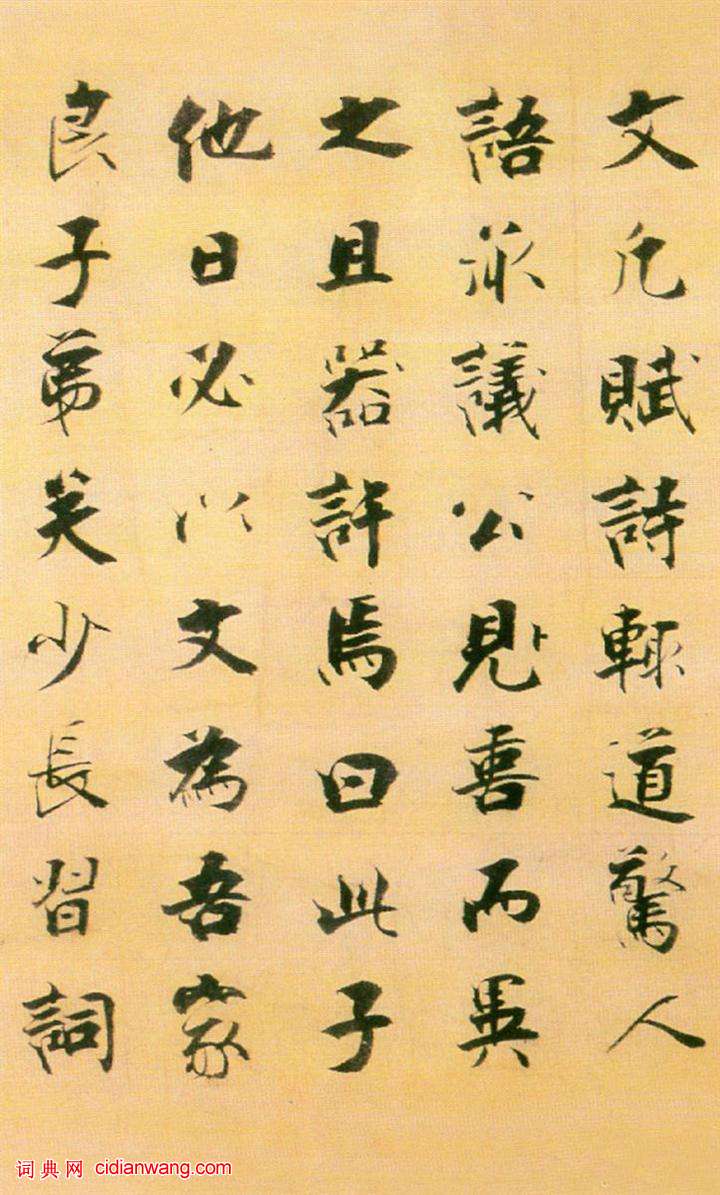 文凡賦詩輙道驚人
語承議公見喜而異
之且器許焉曰此子
他日必以文為吾家
良子弟矣少長習詞
词典网 cidianwang.com